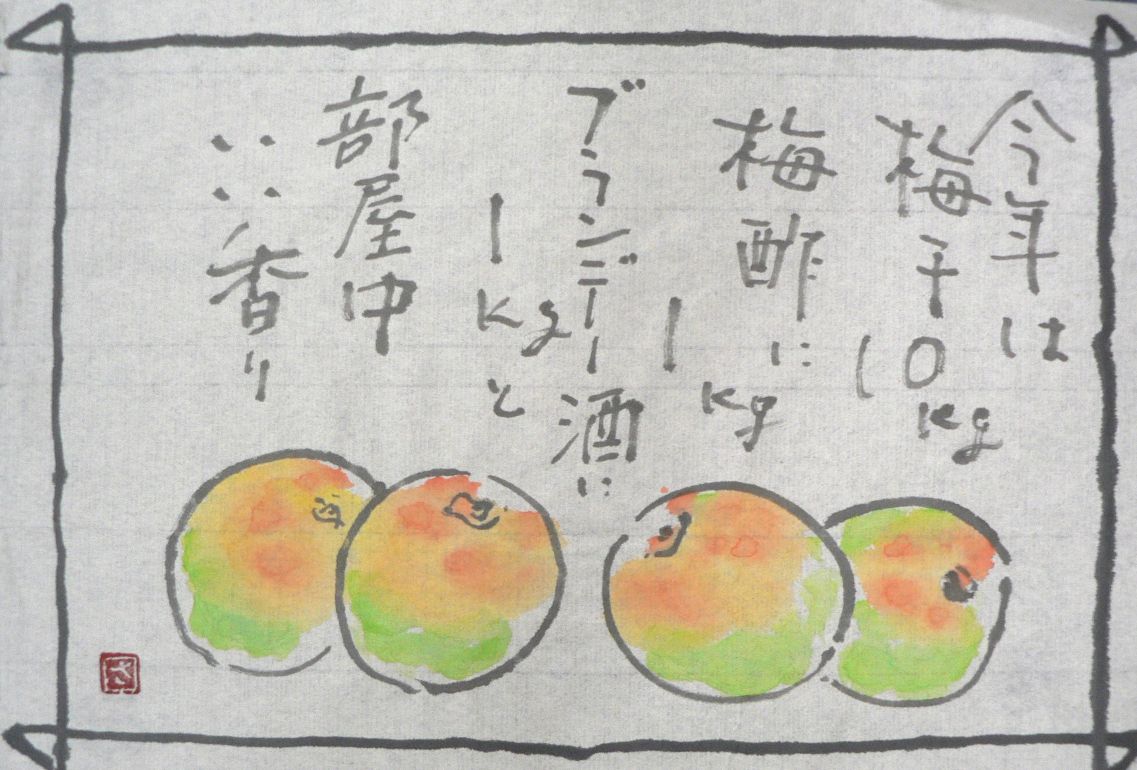 今年は
梅干10kg
梅酢に
1kg
ブランデー酒に
1kgと
部屋中
いい香り